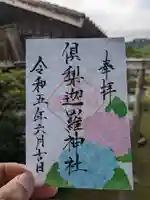 奉拝
倶梨迦羅神社
令和五年六月廿日